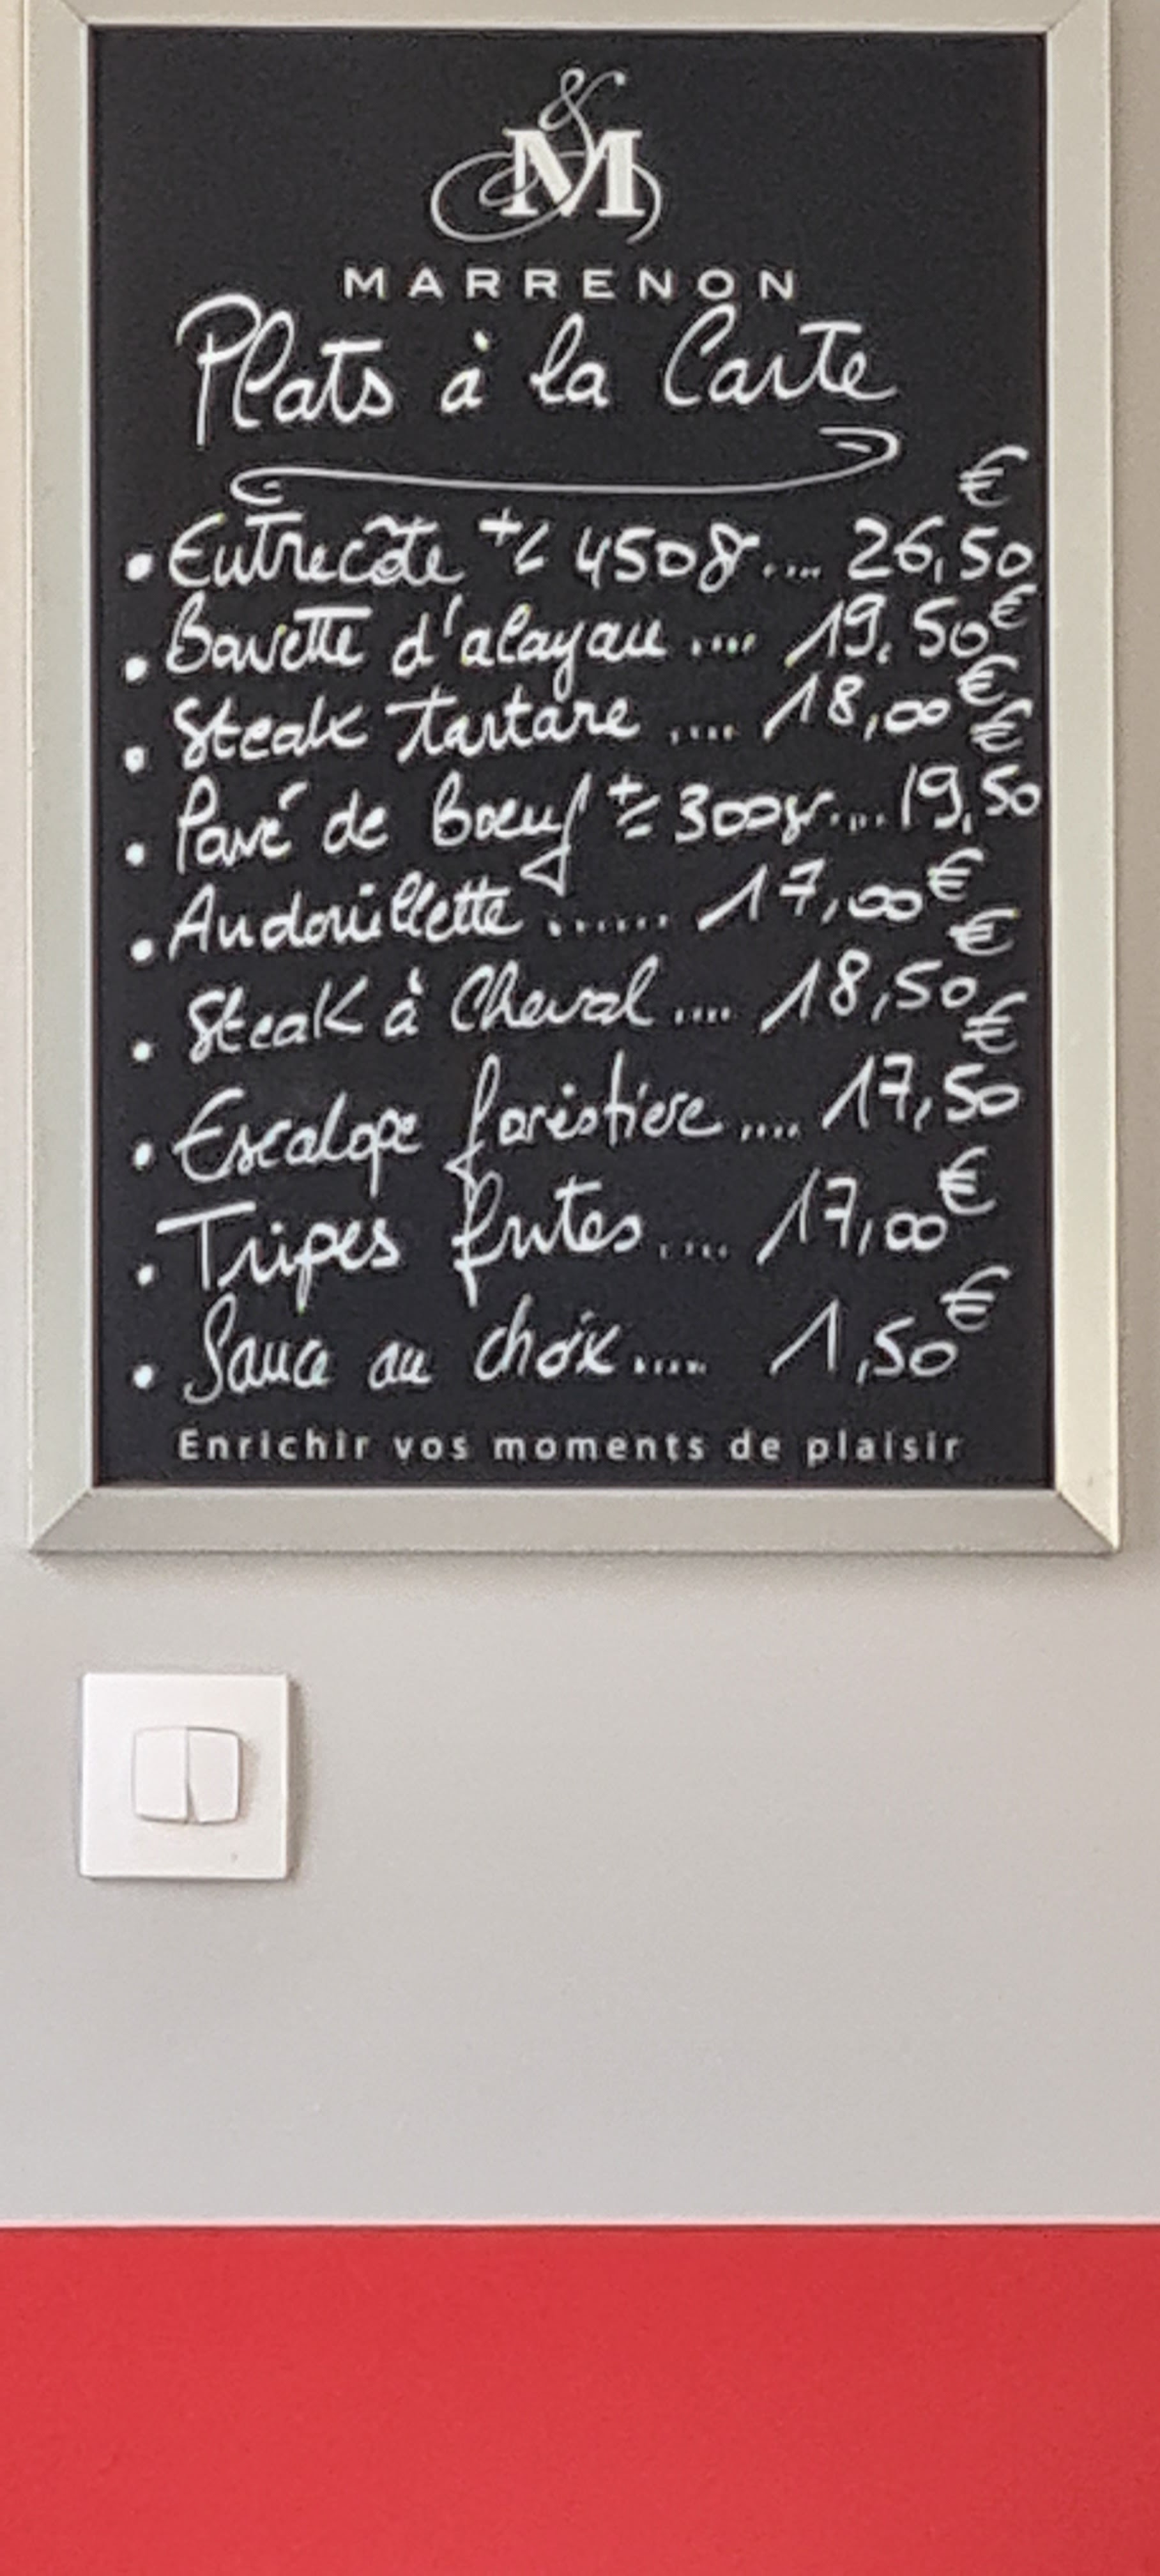 M
MARRENON
Plats à la Carte
• Entrecôte +/- 450g.... 26,50€
• Bavette d'alayau .... 19,50€
• Steak Tartare .... 18,00€
• Pavé de boeuf +/- 300gr.... 19,50€
• Andouillette ....... 17,00€
• Steak à Cheval .... 18,50€
• Escalope forestiere .... 17,50€
• Tripes frites .... 17,00€
• Sauce au choix ..... 1,50€
Enrichir vos moments de plaisir